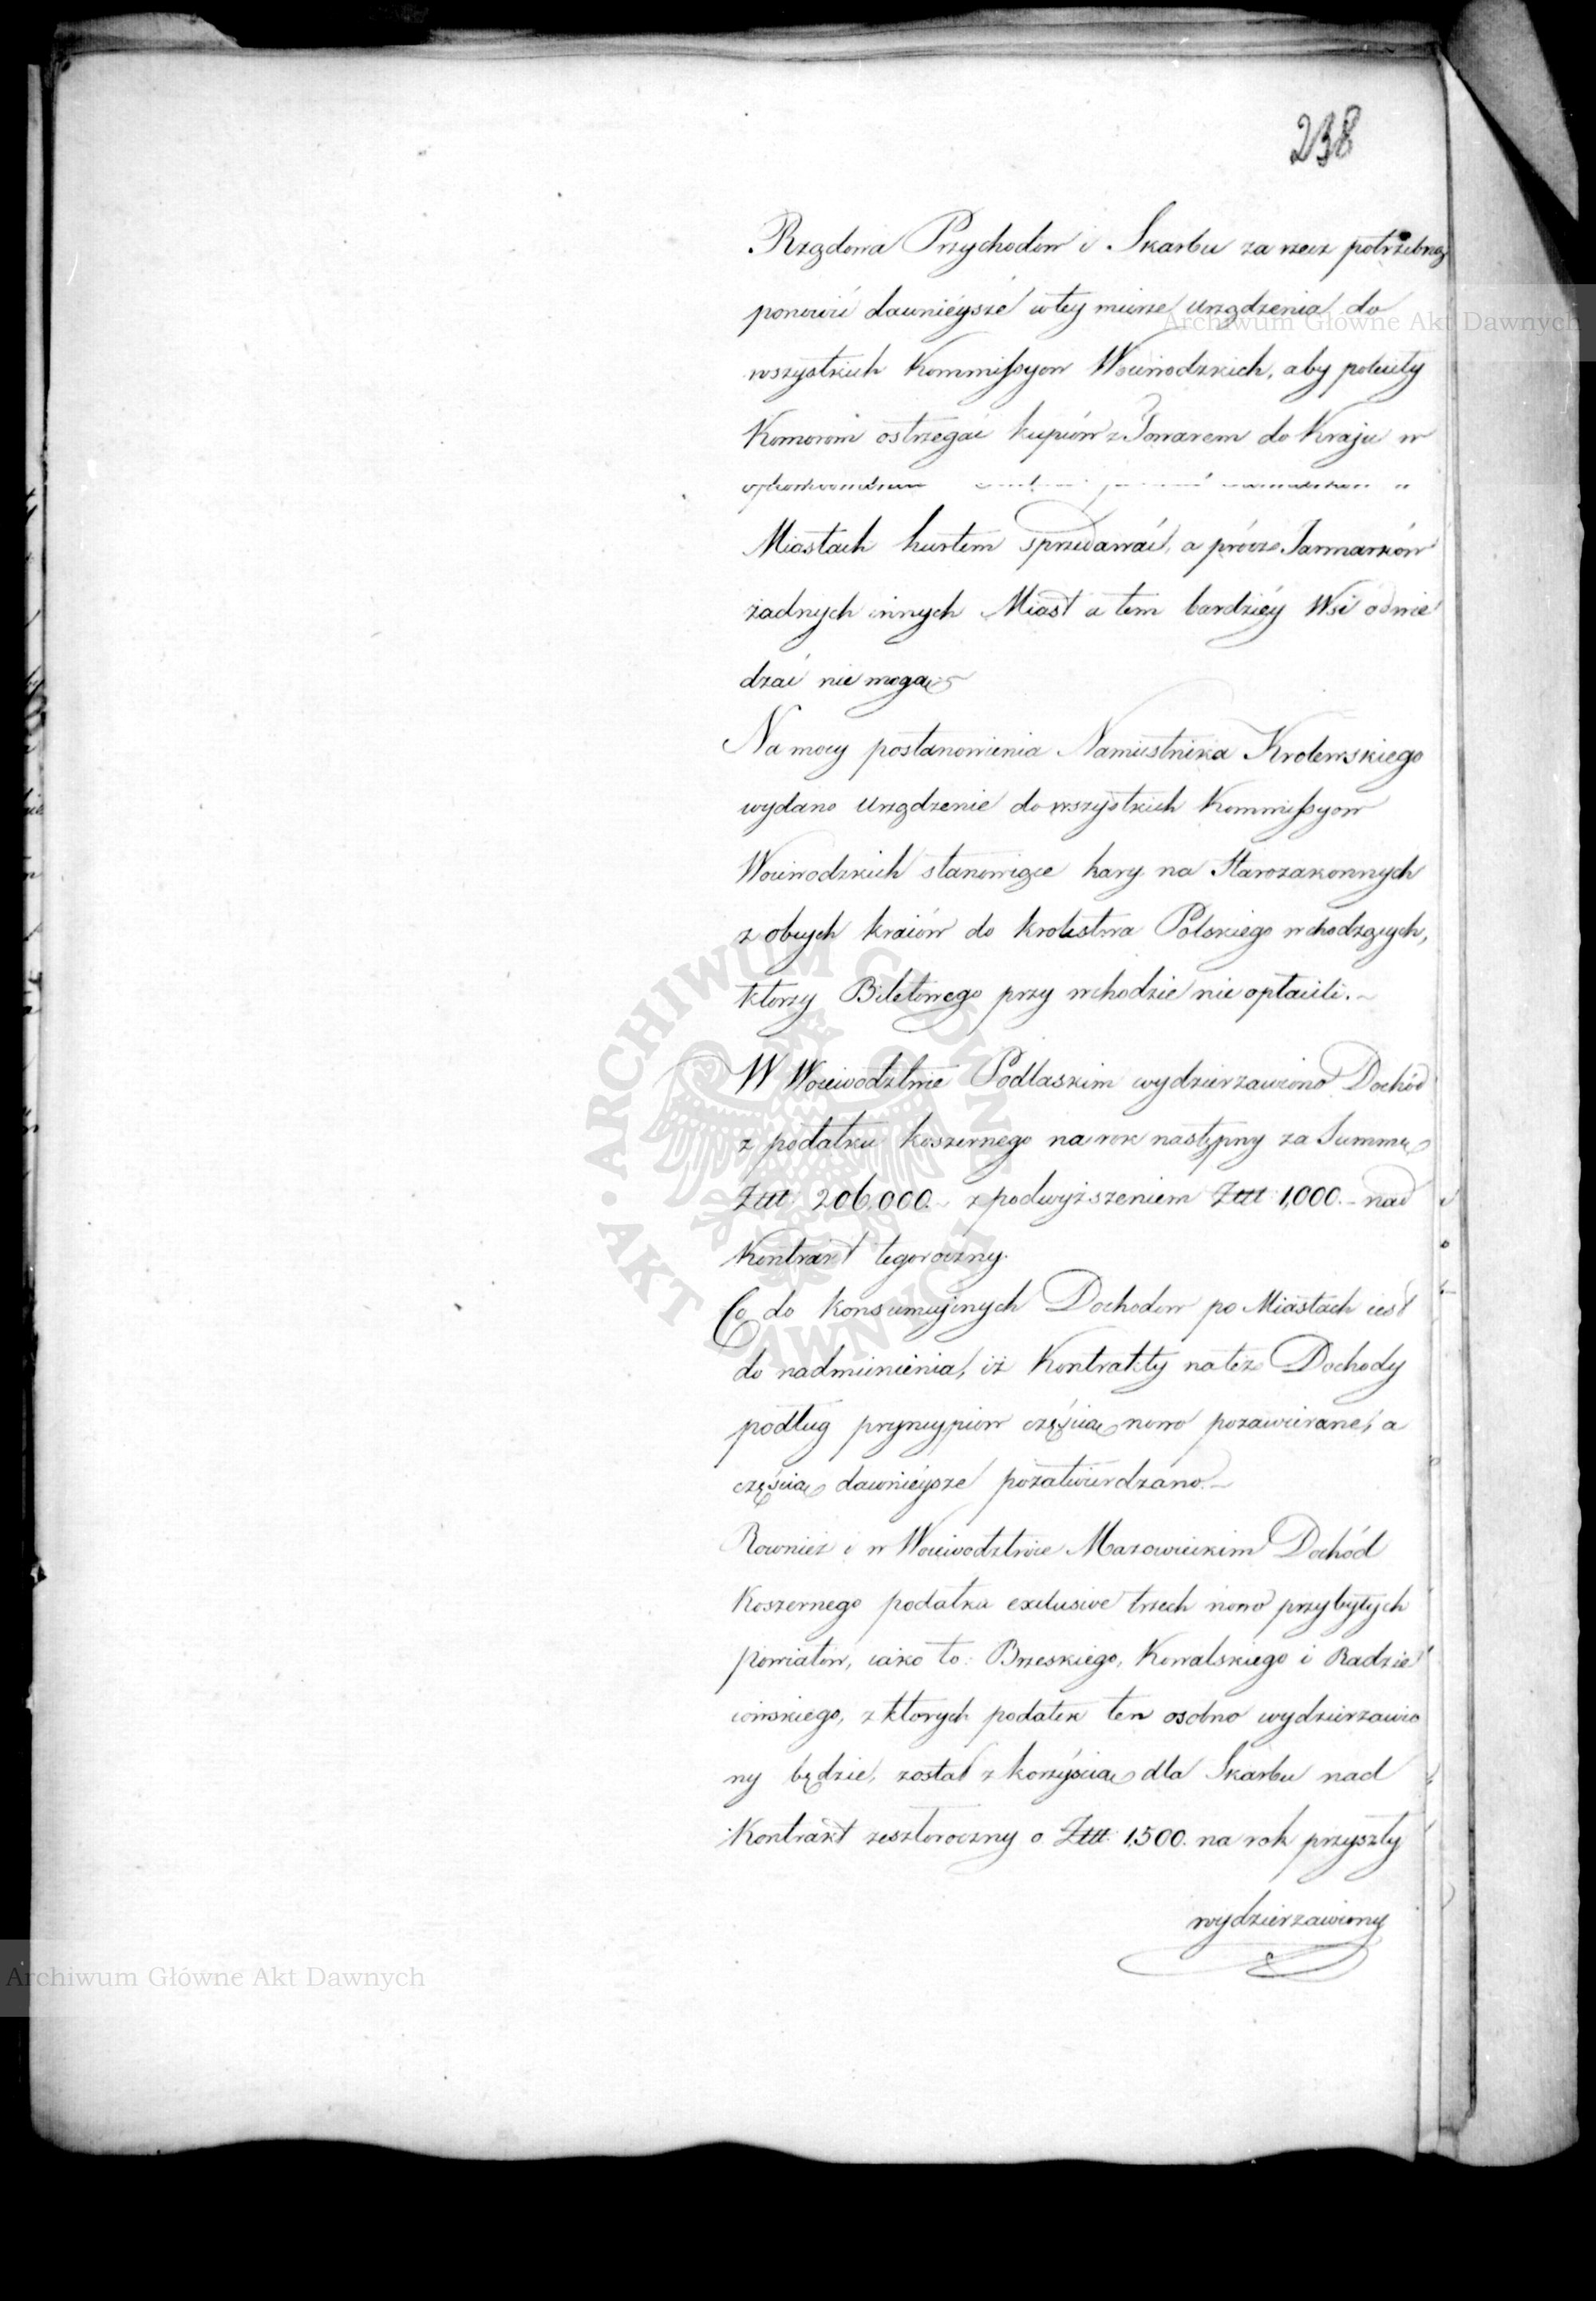 238
Rządowa Przychodow i Skarbu za rzecz potrzebną
ponowić dawnieysze w tey mierze urządzenia do
wszystkich Kommissyow Woiewodzkich, aby poleciły
Komorom ostrzegać kupców z Towarem do Kraju w
Miastach hurtem sprzedawać, a prócz Jarmarków
żadnych innych Miast a tem bardziéy Wsi odwie
dzać nie mogą
Na mocy postanowienia Namiestnika Krolewskiego
wydano urządzenie do wszystkich Kommissyow
Woiewodzkich stanowiące kary na Starozakonnych
z obcych kraiów do krolestwa Polskiego wchodzących,
ktorzy Biletowego przy wchodzie nie opłacili.
W Woiewodztwie Podlaskim wydzierzawiono Dochód
z podatku koszernego na rok następny za Summę
Złtt 206,000.- z podwyższeniem Złtt 1,000.- nad
Kontrakt tegoroczny.
Co do konsumcyjnych Dochodow po Miastach iest
do nadmienienia, iż Kontrakty na też Dochody
podług pryncypiow częścią nowo pozawierane, a
częścią dawnieysze pozatwierdzano.-
Rownież i w Woiewodztwie Mazowieckim Dochód
Koszernego podatku exclusive trzech nowo przybyłych
powiatow, iako to: Brzeskiego, Kowalskiego i Radzie
iowskiego, z ktorych podatek ten osobno wydzierzawio
ny będzie, został z korzyścią dla Skarbu nad
Kontrakt zeszłoroczny o Złtt. 1,500. na rok przyszły
wydzierzawiony
Archiwum Główne Akt Dawnych
ARCHIWUM GŁÓWNE AKT DAWNYCH
Archiwum Główne Akt Dawnych